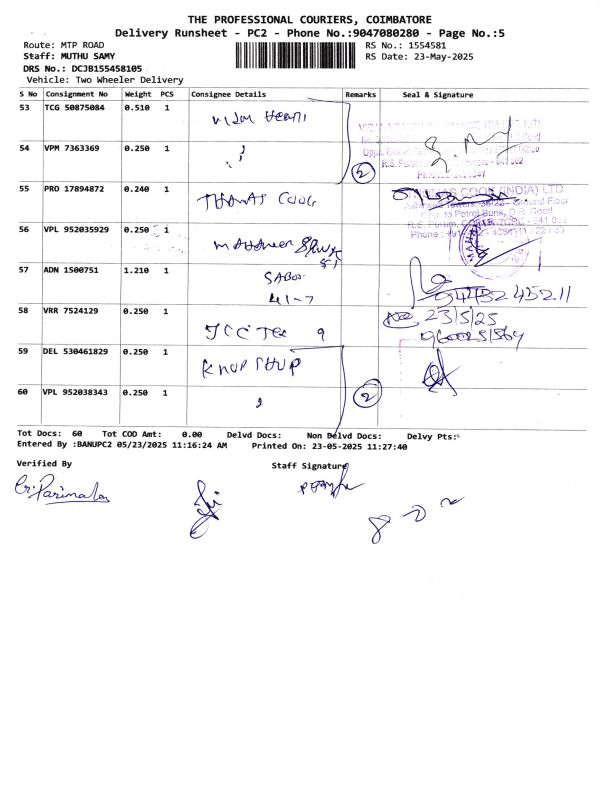 THE PROFESSIONAL COURIERS, COIMBATORE
Delivery Runsheet - PC2 - Phone No.:9047080280 - Page No.:5
Route: MTP ROAD
RS No.: 1554581
Staff: MUTHU SAMY
RS Date: 23-May-2025
DRS No.: DCJB155458105
Vehicle: Two Wheeler Delivery
S No Consignment No Weight PCS Consignee Details Remarks Seal & Signature
53 TCG 50875084 0.510 1
54 VPM 7363369 0.250 1
2
55 PRO 17894872 0.240 1 THOMAS COOK
THOMAS COOK (INDIA) LTD
Ground Floor
Opp. to Petrol Bunk, D.B. Road
R.S. Puram,
Phone :
56 VPL 952035929 0.250 1
57 ADN 1500751 1.210 1
41-7
58 VRR 7524129 0.250 1
23/5/25
59 DEL 530461829 0.250 1
60 VPL 952038343 0.250 1
2
Tot Docs: 60 Tot COD Amt: 0.00 Delvd Docs: Non Delvd Docs: Delvy Pts:
Entered By :BANUPC2 05/23/2025 11:16:24 AM Printed On: 23-05-2025 11:27:40
Verified By Staff Signature